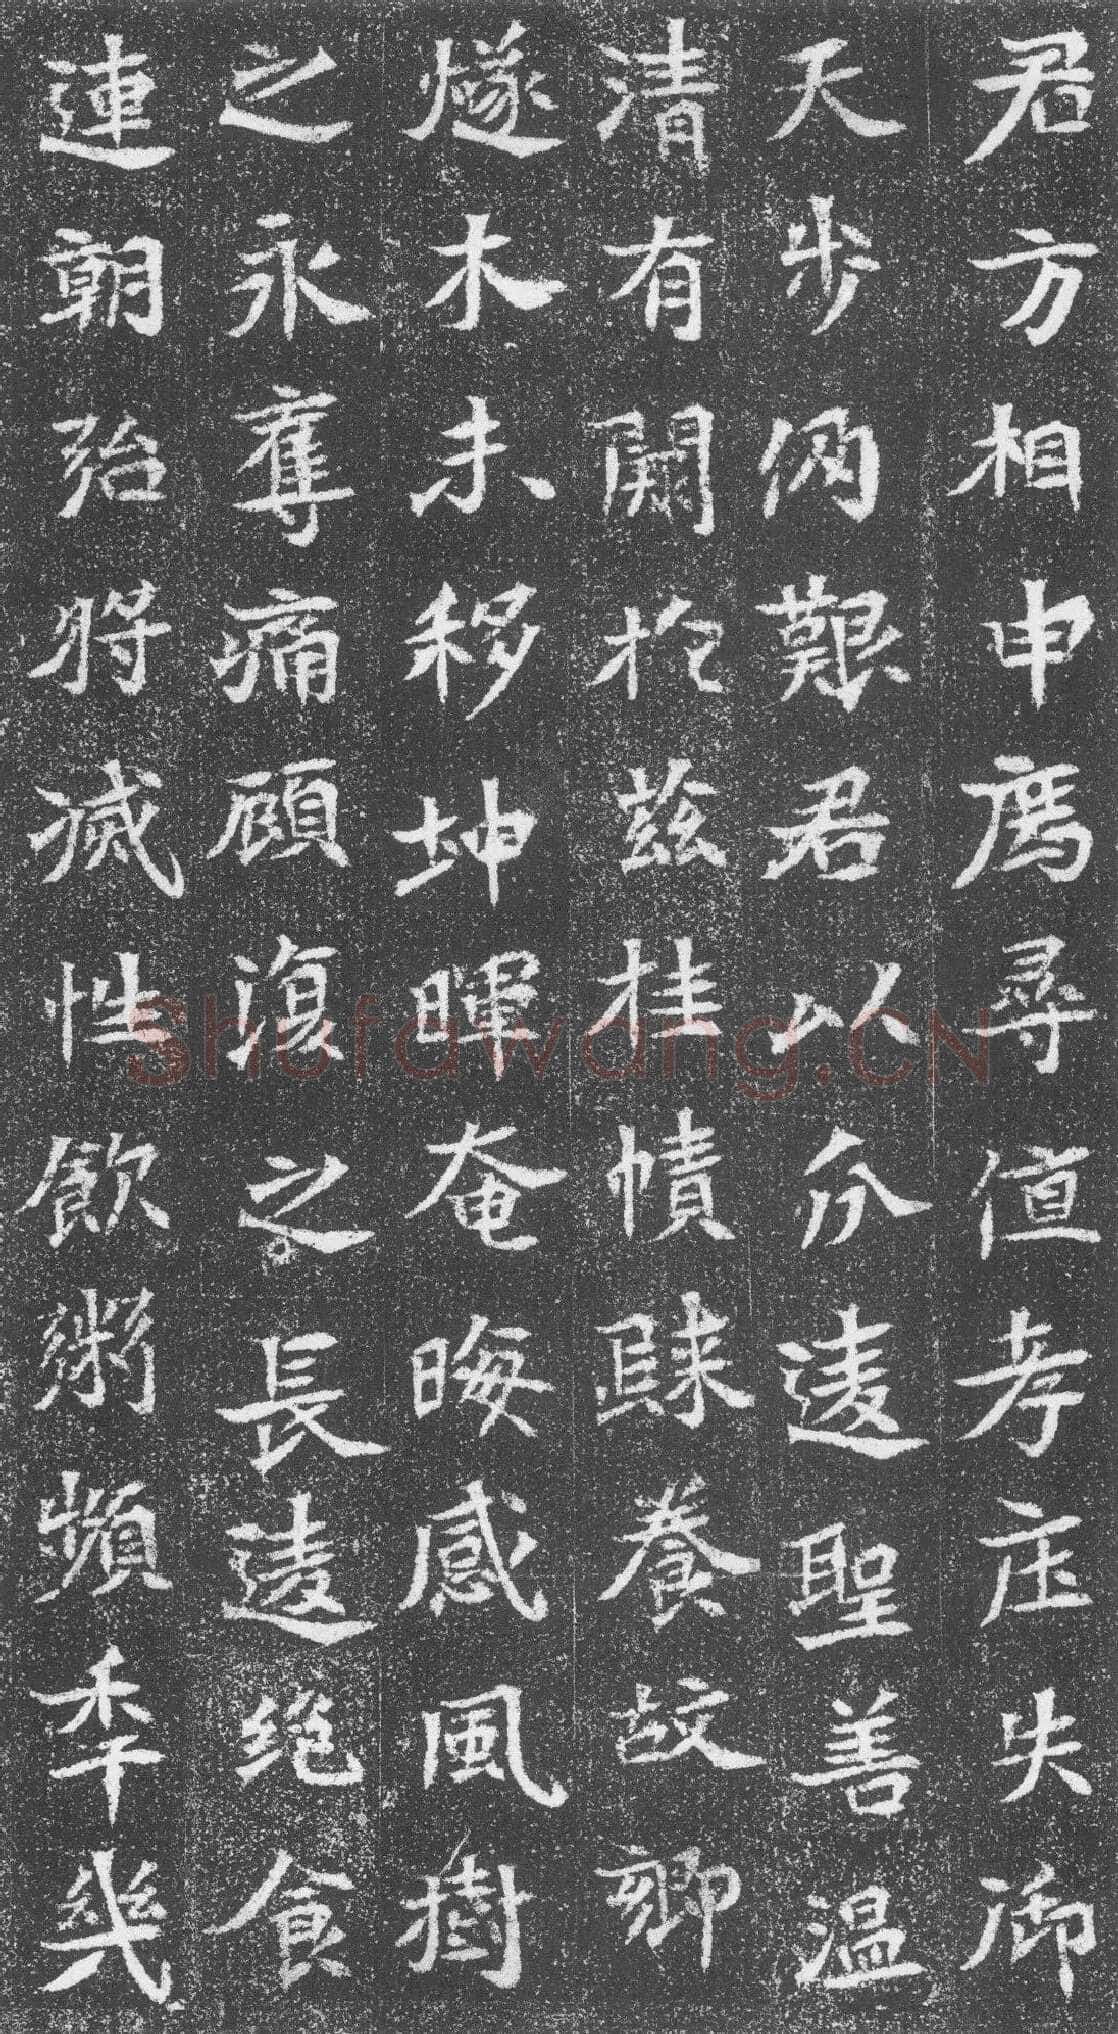 君方相申爲尋值孝庄失御
天步艱君以分違聖善溫
清有闕於茲挂幘歸養故鄉
燧木未移坤暉奄晦感風樹
之永奪痛顧復之長違絕食
連朝殆將滅性飲粥頻秊幾
Shufawang.CN